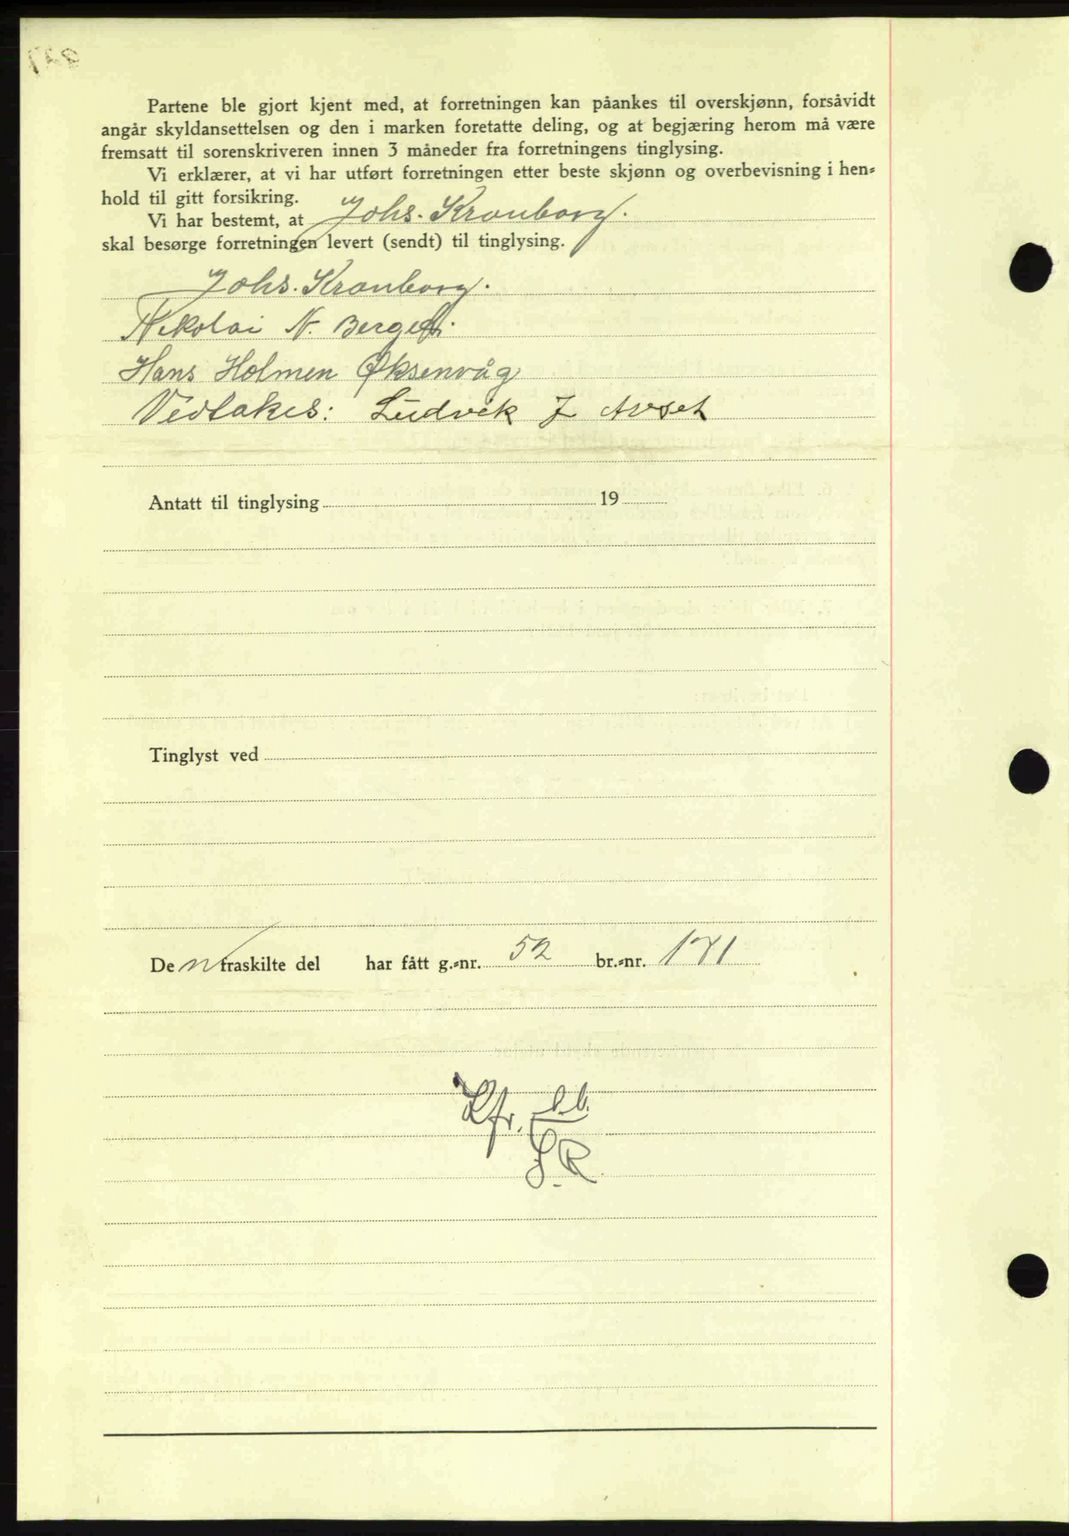 Partene ble gjort kjent med, at forretningen kan påankes til overskjønn, forsåvidt
angår skyldansettelsen og den i marken foretatte deling, og at begjæring herom må være
fremsatt til sorenskriveren innen 3 måneder fra forretningens tinglysing.
Vi erklærer, at vi har utført forretningen etter beste skjønn og overbevisning i hen-
hold til gitt forsikring.
Vi har bestemt, at Johs. Kronborg.
skal besørge forretningen levert (sendt) til tinglysing.
Johs. Kronborg.
Nikolai N.
Hans Holmen Øksenvåg
Vedtakes: Ludvik J Avset
Antatt til tinglysing 19
Tinglyst ved
Den fraskilte del har fått g.-nr. 52 br.-nr. 171
Kfr.